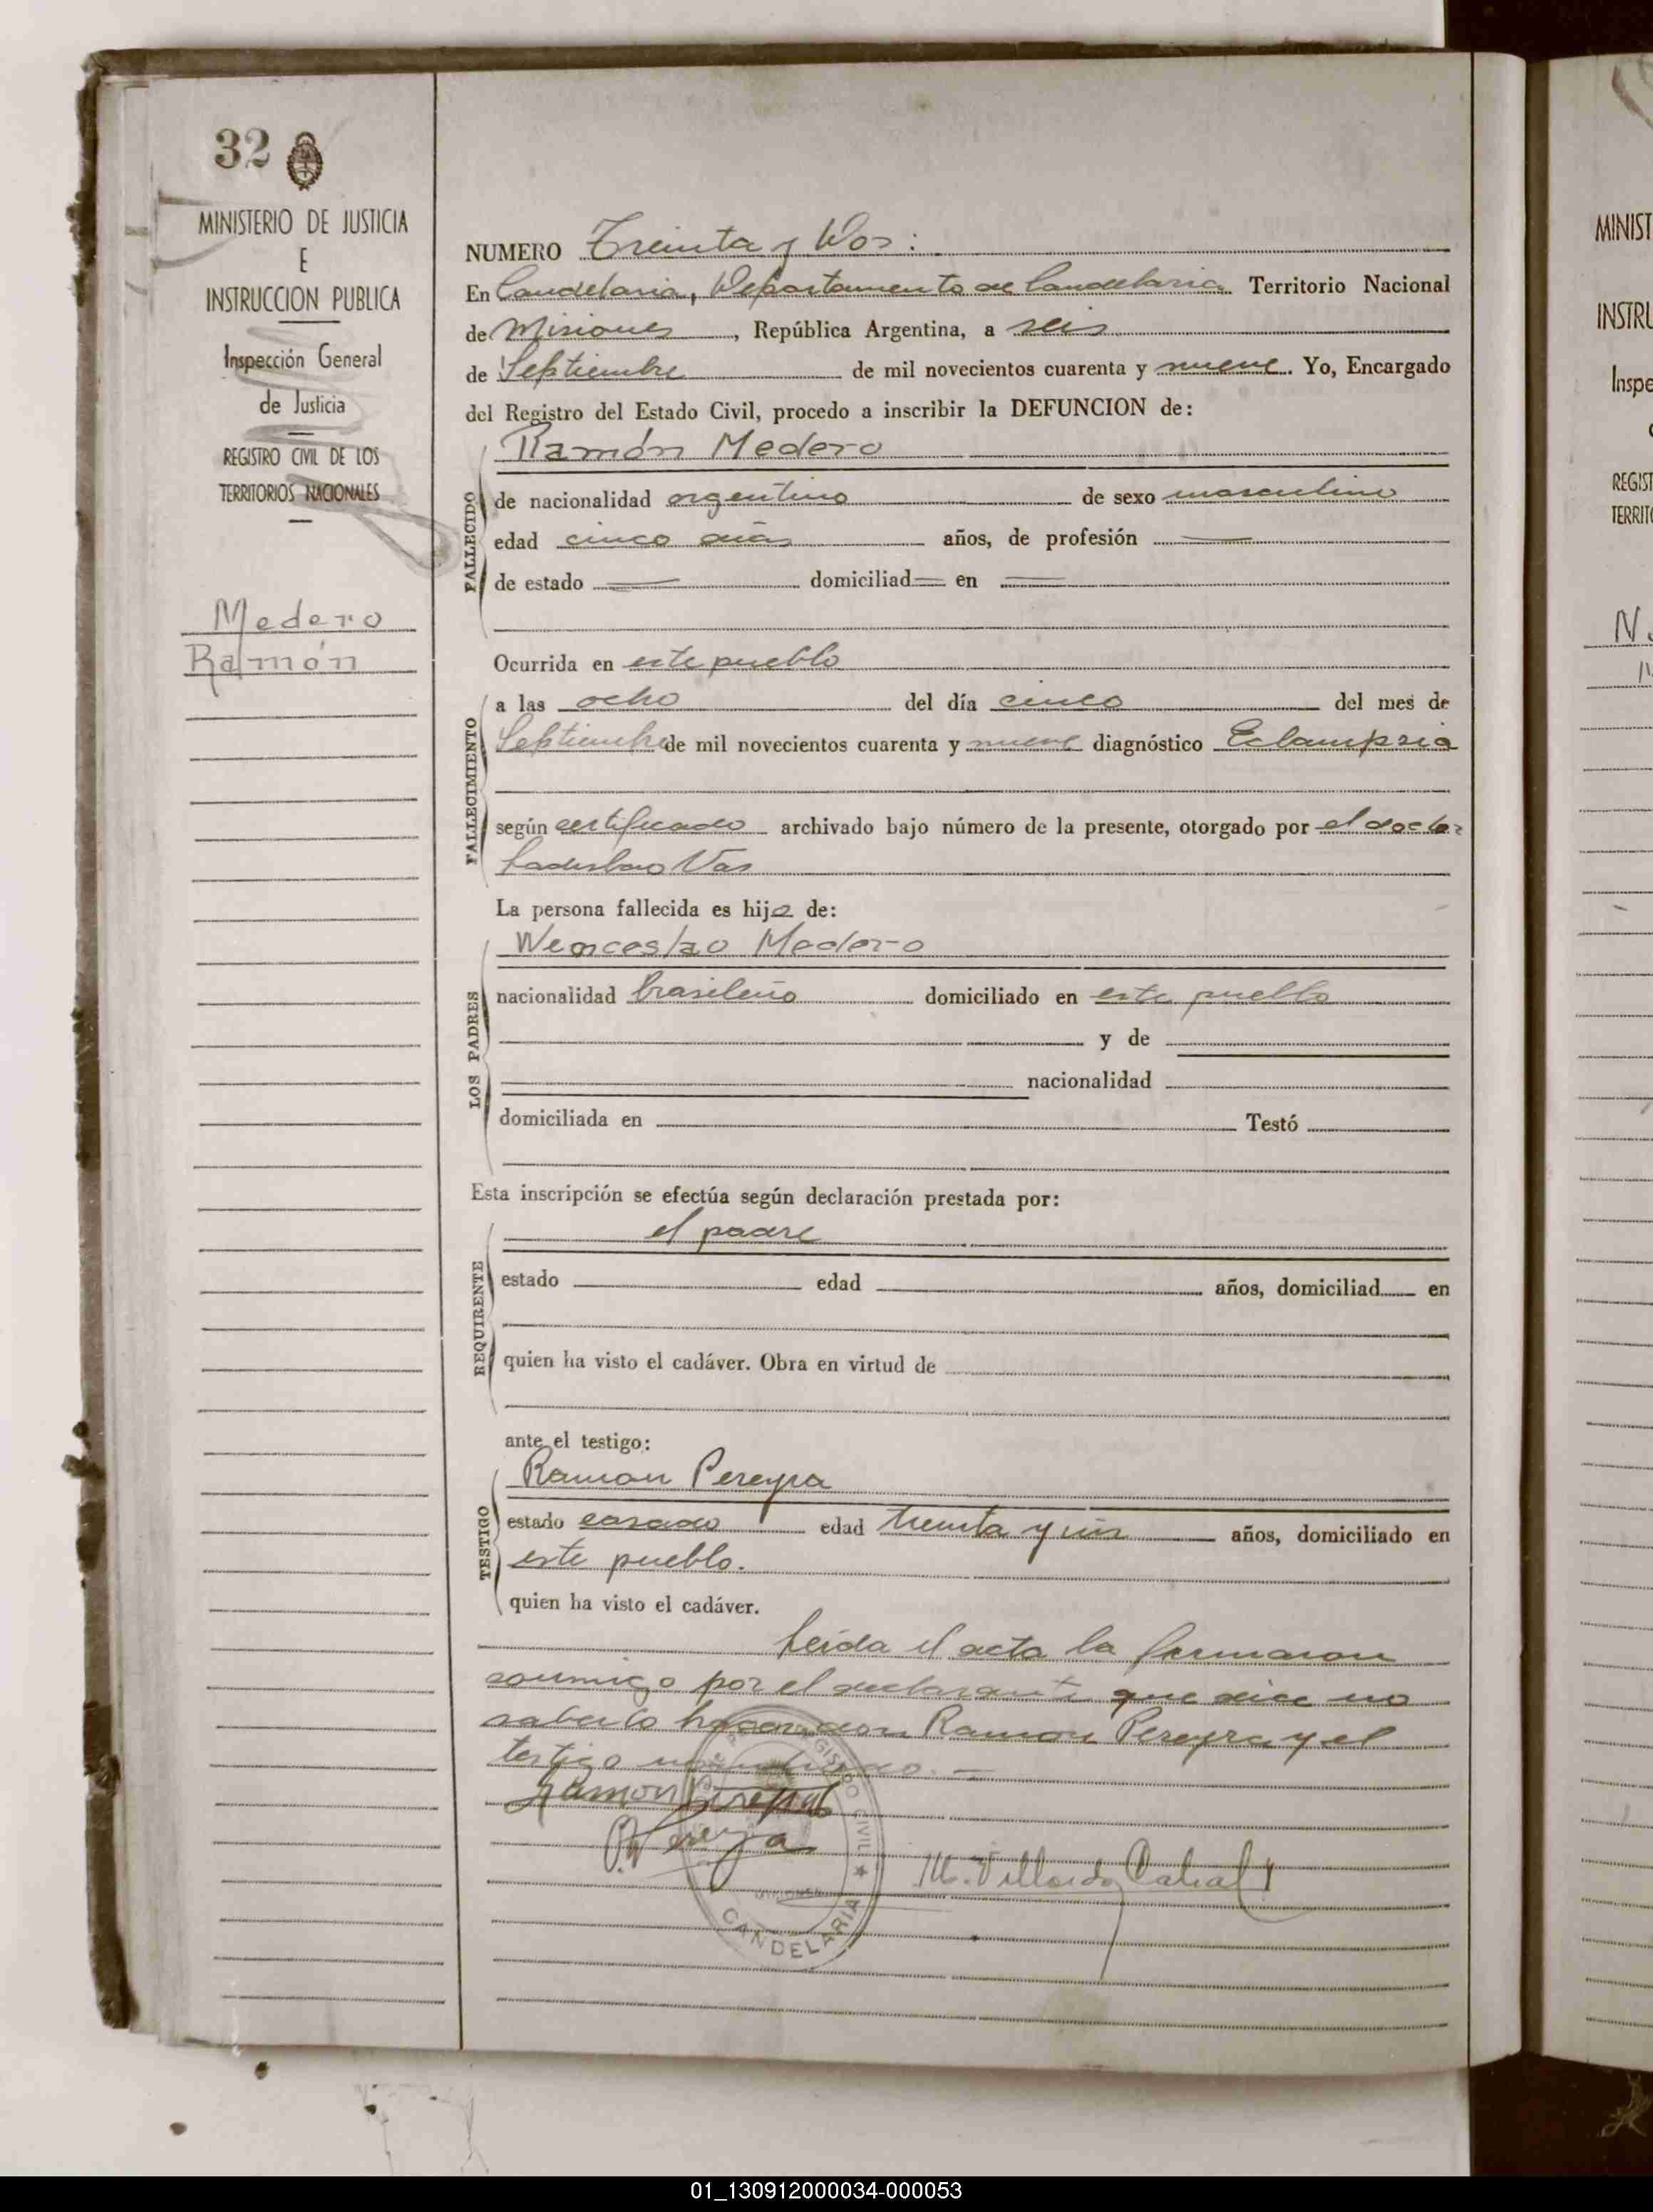 32
MINISTERIO DE JUSTICIA
E
INSTRUCCION PUBLICA
Inspección General
de Justicia
REGISTRO CIVIL DE LOS
TERRITORIOS NACIONALES
Medero
Ramón
NUMERO Treinta y Dos:
En Candelaria, Departamento de Candelaria Territorio Nacional
de Misiones, República Argentina, a seis
de Septiembre de mil novecientos cuarenta y nueve. Yo, Encargado
del Registro del Estado Civil, procedo a inscribir la DEFUNCION de:
FALLECIDO
Ramón Medero
de nacionalidad argentino de sexo masculino
edad cinco dias años, de profesión —
de estado — domiciliad— en —
Ocurrida en este pueblo
FALLECIMIENTO
a las ocho del día cinco del mes de
Septiembre de mil novecientos cuarenta y nueve diagnóstico Eclampsia
según certificado archivado bajo número de la presente, otorgado por el doctor
Ladislao Vas
La persona fallecida es hijo de:
LOS PADRES
Wenceslao Medero
nacionalidad brasileño domiciliado en este pueblo
y de
nacionalidad
domiciliada en Testó
Esta inscripción se efectúa según declaración prestada por:
REQUIRENTE
el padre
estado edad años, domiciliad en
quien ha visto el cadáver. Obra en virtud de
ante el testigo:
TESTIGO
Ramon Pereyra
estado casado edad treinta y un años, domiciliado en
este pueblo.
quien ha visto el cadáver.
Leida el acta la firmaron
conmigo por el declarante que dice no
saberlo hacer don Ramon Pereyra y el
testigo nombrado. —
Ramon Pereyra
Pereyra
M. Villordo Cabral
REGISTRO CIVIL ★
MISIONES
CANDELARIA
MINIST
INSTRU
Inspe
REGIST
TERRITO
01_130912000034-000053